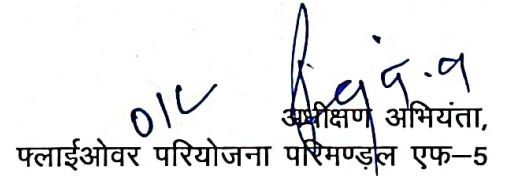 अधीक्षण अभियंता,
फ्लाईओवर परियोजना परिमण्ड़ल एफ–5